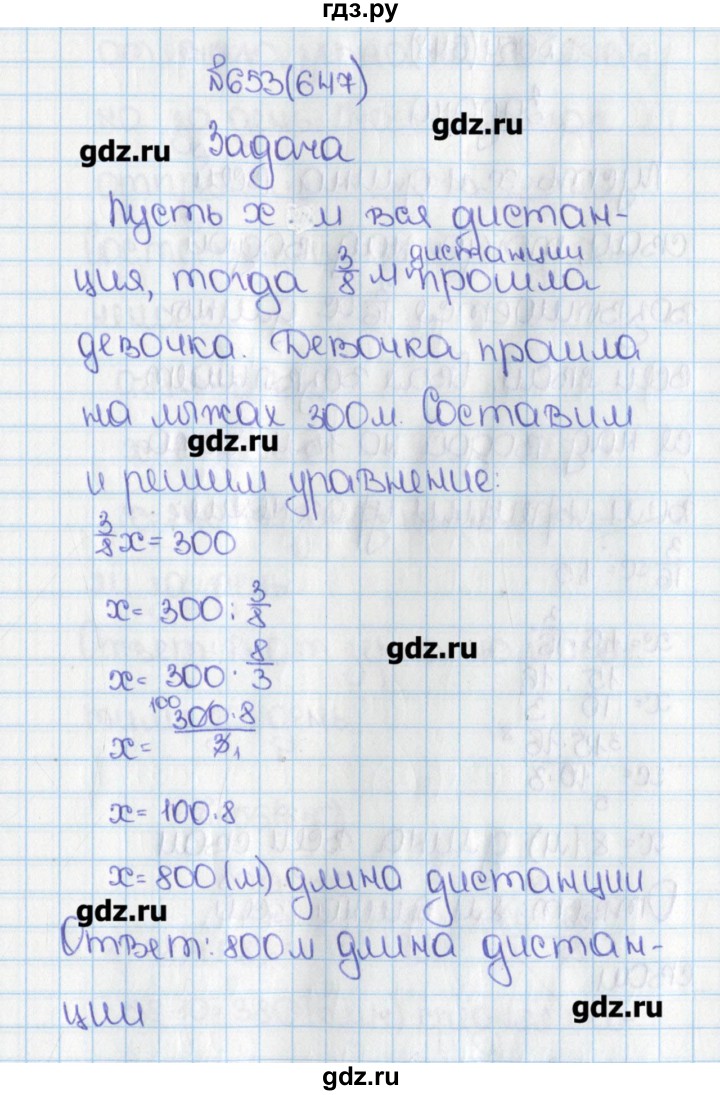 гдз.ру
№653(647)
gdz.ru
gdz.ru
Задача
Пусть x м вся дистан-
дистанции
ция, тогда 3/8 м прошла
девочка. Девочка прошла
на лыжах 300м. Составим
gdz.ru
и решим уравнение:
3/8 x = 300
x = 300 : 3/8
gdz.ru
x = 300 · 8/3
x = 100 300·8 / 3 1
x = 100·8
x = 800 (м) длина дистанции
gdz.ru
Ответ: 800м длина дистан-
ции
gdz.ru
gdz.ru